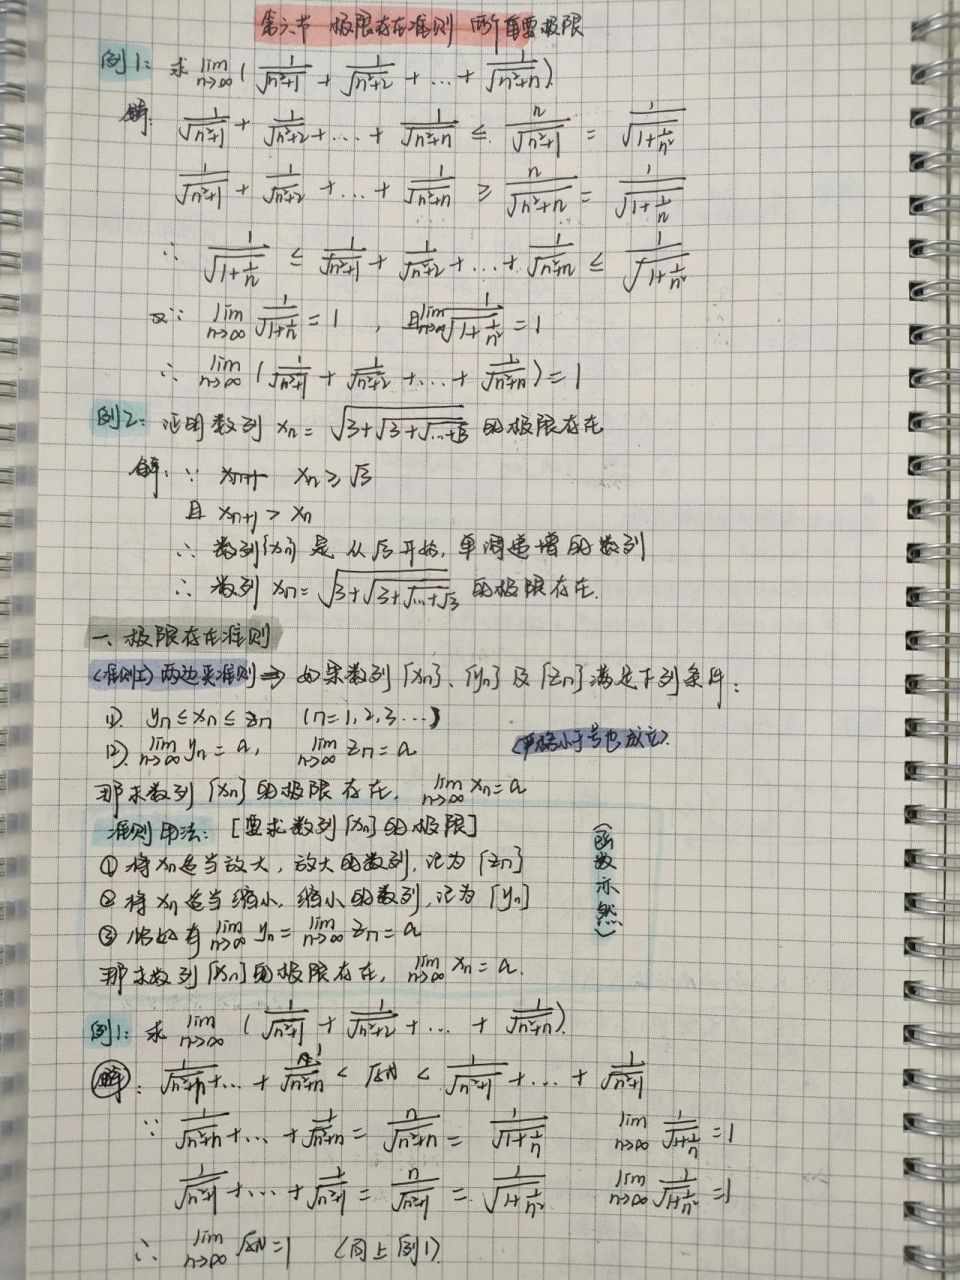 第六节 极限存在准则 两个重要极限
例1: 求 lim n→∞ ( 1/√(n²+1) + 1/√(n²+2) + … + 1/√(n²+n) ).
解: 1/√(n²+1) + 1/√(n²+2) + … + 1/√(n²+n) ≤ n/√(n²+1) = 1/√(1+1/n²)
1/√(n²+1) + 1/√(n²+2) + … + 1/√(n²+n) ≥ n/√(n²+n) = 1/√(1+1/n)
∴ 1/√(1+1/n) ≤ 1/√(n²+1) + 1/√(n²+2) + … + 1/√(n²+n) ≤ 1/√(1+1/n²)
又∵ lim n→∞ 1/√(1+1/n) = 1 , 且 lim n→∞ 1/√(1+1/n²) = 1
∴ lim n→∞ ( 1/√(n²+1) + 1/√(n²+2) + … + 1/√(n²+n) ) = 1
例2: 证明数列 xn = √(3+√(3+√(…+√3))) 的极限存在
解: ∵ xn ≥ √3
且 xn+1 > xn
∴ 数列{xn} 是从√3开始, 单调递增的数列
∴ 数列 xn = √(3+√(3+√(…+√3))) 的极限存在.
一、极限存在准则
(准则I) 两边夹准则 ⇒ 如果数列{xn}、{yn} 及 {zn} 满足下列条件:
(1). yn ≤ xn ≤ zn (n=1,2,3…)
(2). lim n→∞ yn = a, lim n→∞ zn = a (严格小于号也成立).
那末数列{xn}的极限存在, lim n→∞ xn = a
准则用法: [要求数列{xn}的极限]
① 将xn适当放大, 放大的数列, 记为{zn}
② 将xn适当缩小, 缩小的数列, 记为{yn}
③ 恰好有 lim n→∞ yn = lim n→∞ zn = a
那末数列{xn}的极限存在, lim n→∞ xn = a.
(函数亦然)
例1: 求 lim n→∞ ( 1/√(n²+1) + 1/√(n²+2) + … + 1/√(n²+n) ).
解: 1/√(n²+n) + … + 1/√(n²+n) < 原式 < 1/√(n²+1) + … + 1/√(n²+1)
∵ 1/√(n²+n) + … + 1/√(n²+n) = n/√(n²+n) = 1/√(1+1/n) lim n→∞ 1/√(1+1/n) = 1
1/√(n²+1) + … + 1/√(n²+1) = n/√(n²+1) = 1/√(1+1/n²) lim n→∞ 1/√(1+1/n²) = 1
∴ lim n→∞ 原式 = 1 (同上例1).